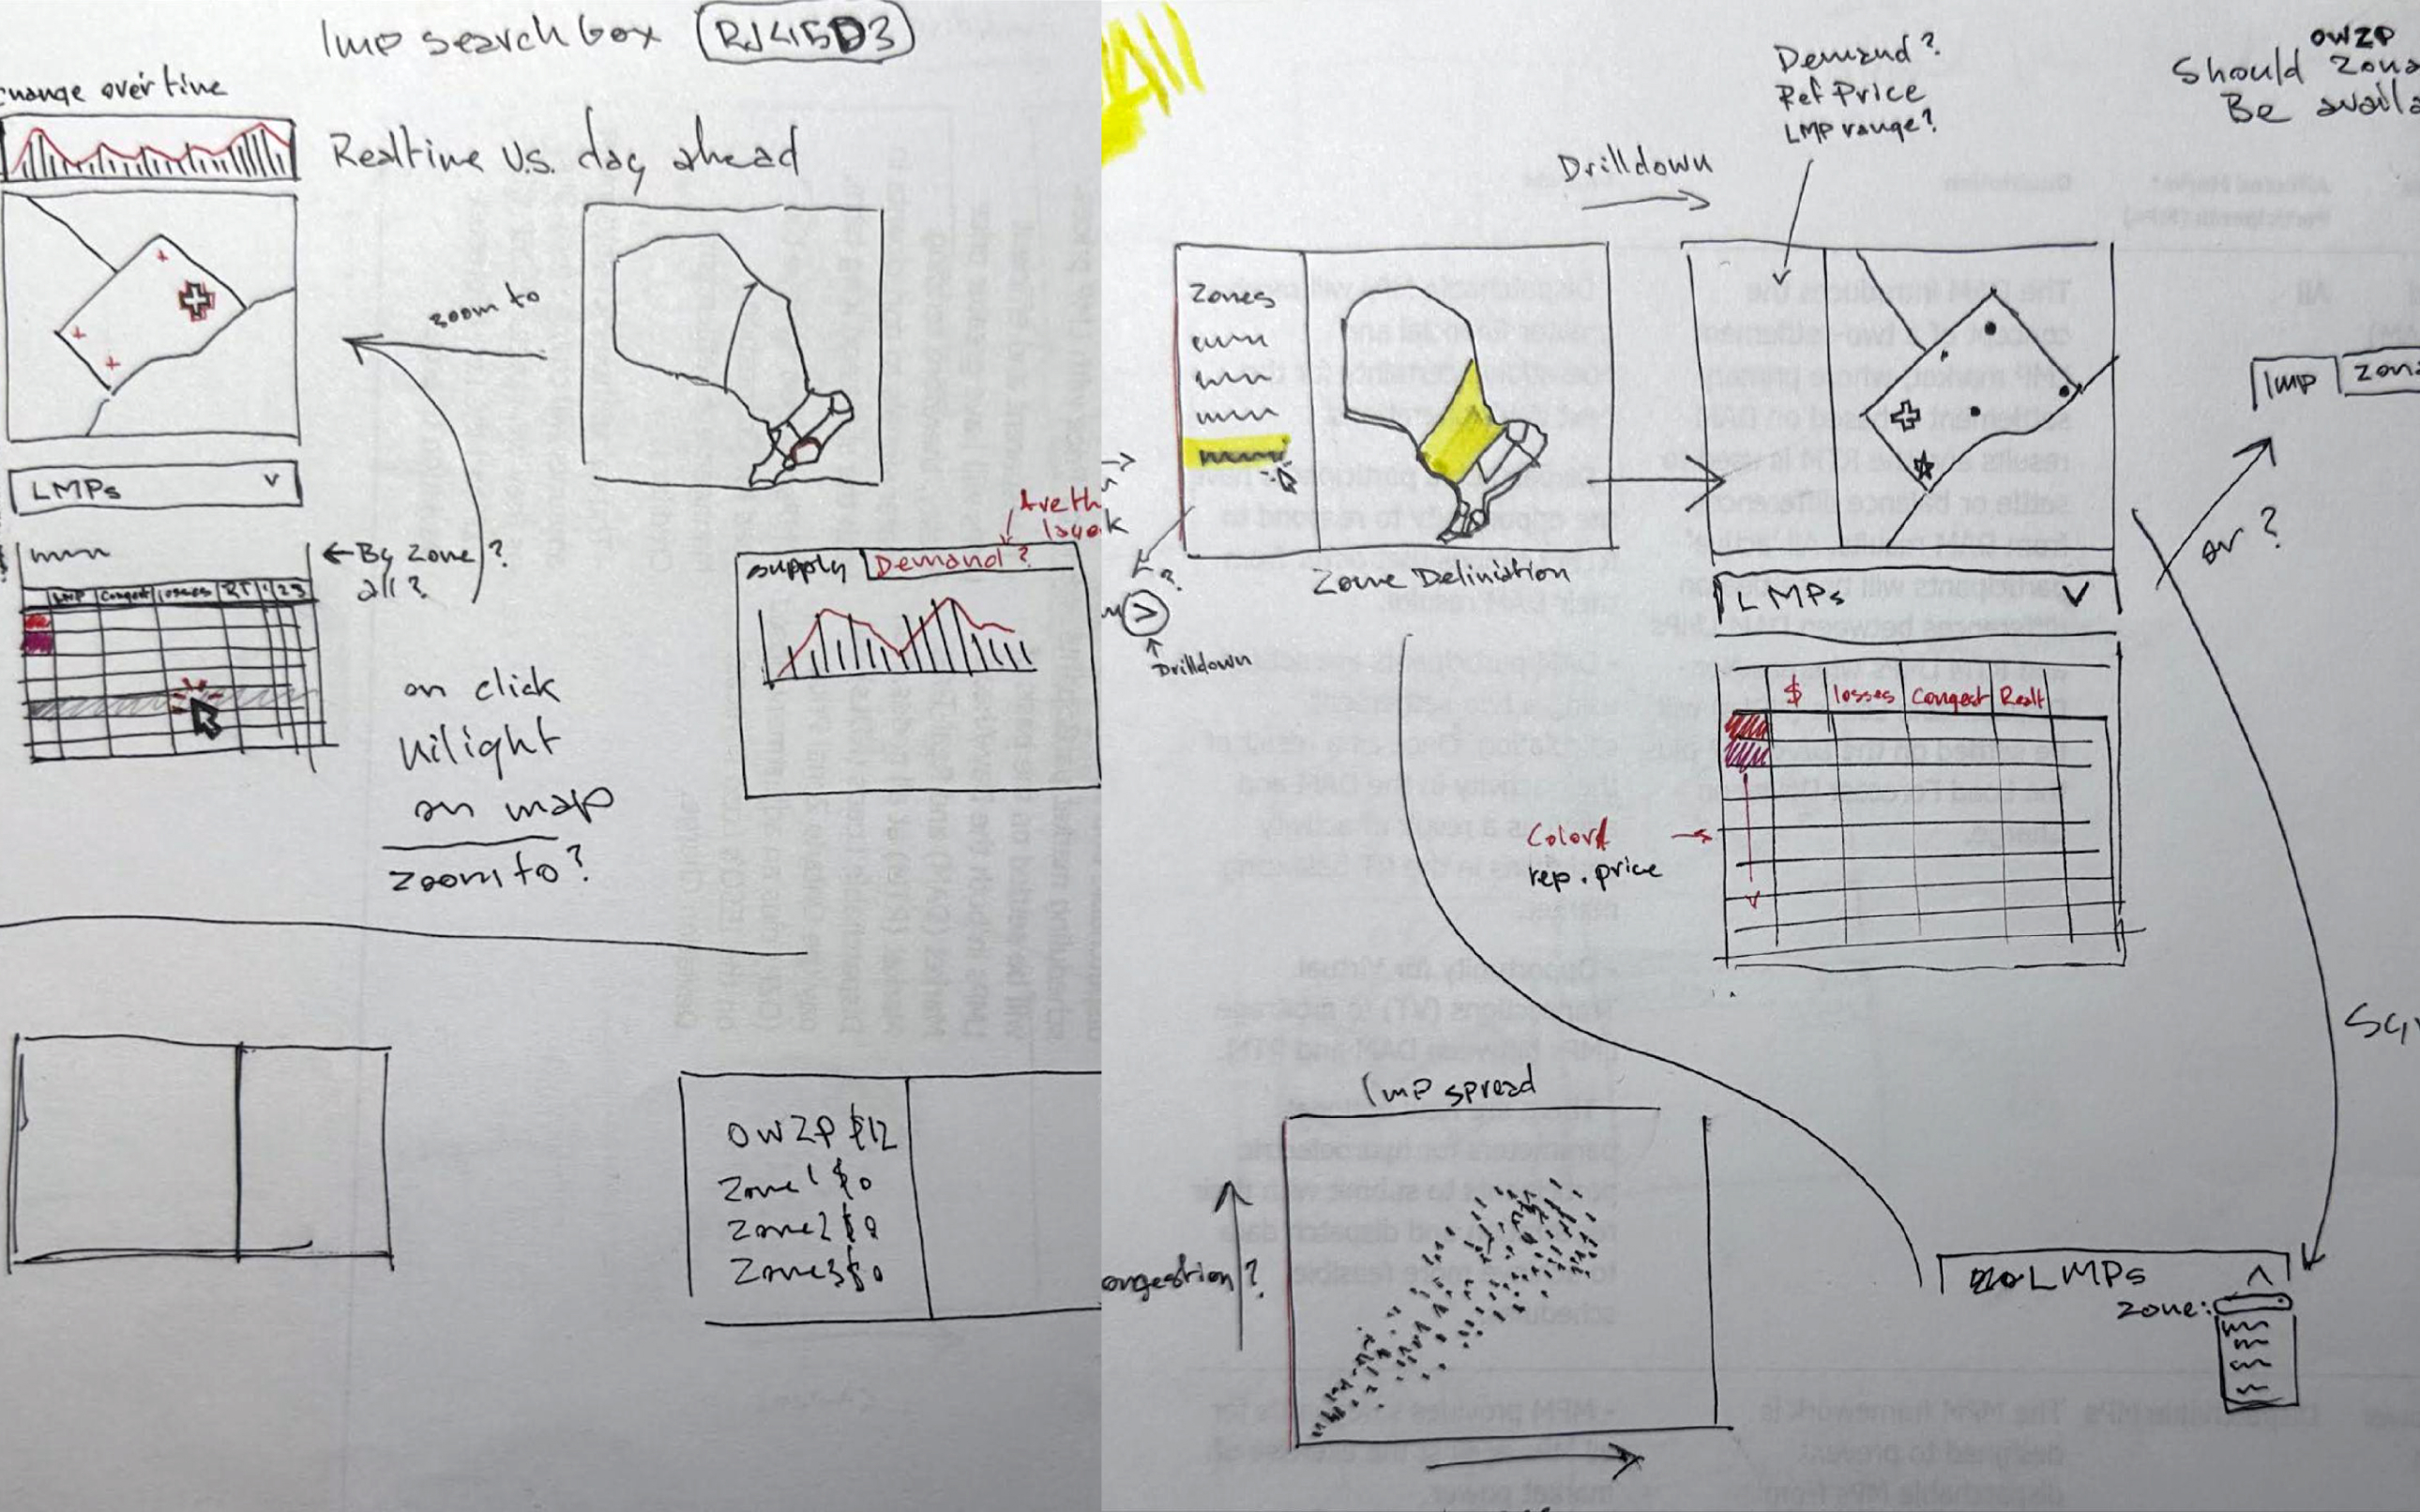 lmp search box RJ45D3
change over time
Realtime V.S. day ahead
zoom to
LMPs
← By zone?
all?
LMP Congest losses RT 1 2 3
on click
hilight
on map
zoom to?
supply Demand?
OWZP $12
Zone 1 $0
Zone2 $0
Zone3 $0
All
Drilldown
Demand?
Ref Price
LMP range?
OWZP
Should
Be
Zones
Zone Deliniation
?
Drilldown
lmp
or?
LMPs
$ losses Congest Realt
Colors
rep. price
lmp spread
LMPs
zone: